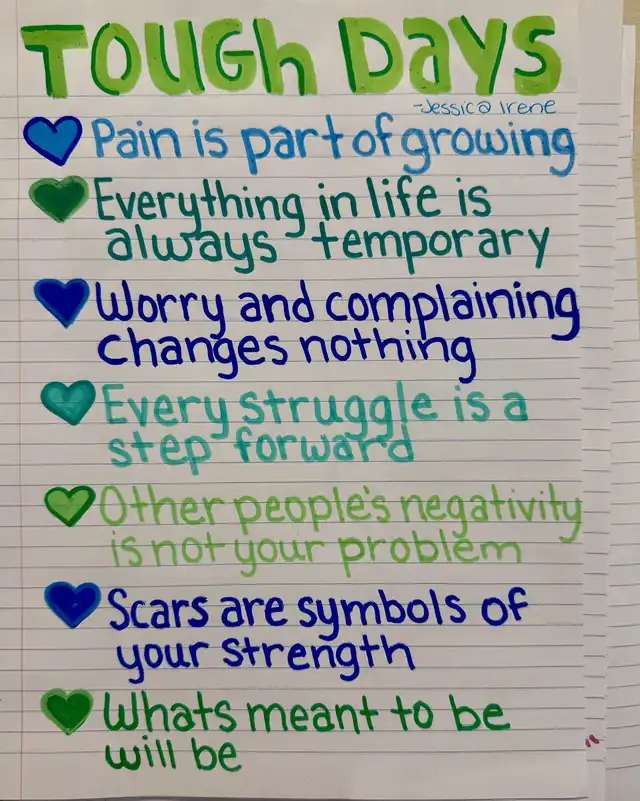 TOUGH DAYS
-Jessica Irene
Pain is part of growing
Everything in life is
always temporary
Worry and complaining
changes nothing
Every struggle is a
step forward
Other people's negativity
is not your problem
Scars are symbols of
your strength
Whats meant to be
will be